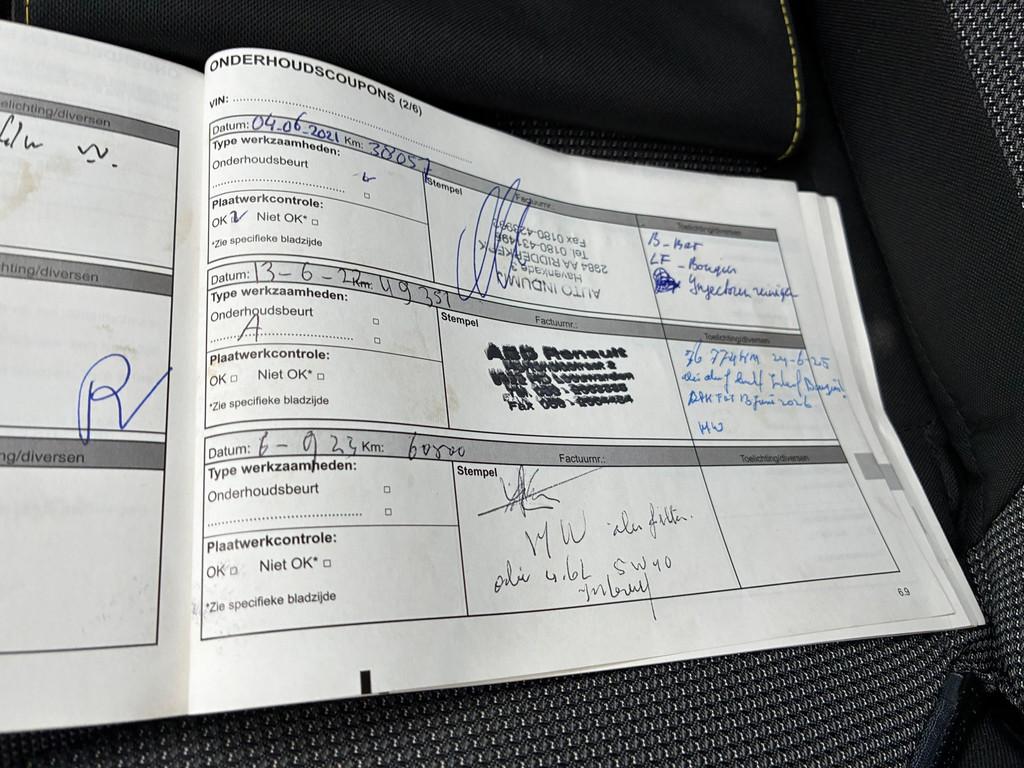 elichting/diversen
hting/diversen
ng/diversen
ONDERHOUDSCOUPONS (2/6)
VIN:
Datum: 04-06-2021 Km: 38057
Type werkzaamheden:
Onderhoudsbeurt
Plaatwerkcontrole:
OK Niet OK*
*Zie specifieke bladzijde
Stempel
Factuurnr.:
AUTO INDUMIJ
Havenkade 3
2984 AA RIDDERKERK
Tel. 0180-431496
Fax 0180-
Toelichting/diversen
B-Bar
LF - Bougies
Injectoren reinigen
Datum: 13-6-22 Km: 49351
Type werkzaamheden:
Onderhoudsbeurt
A
Plaatwerkcontrole:
OK Niet OK*
*Zie specifieke bladzijde
Stempel
Factuurnr.:
ABD Renault
Leeuwarden
Fax 058 -
Toelichting/diversen
24-6-25
APK Tot 13 juni 2026
MW
Datum: 6-9 23 Km: 60800
Type werkzaamheden:
Onderhoudsbeurt
Plaatwerkcontrole:
OK Niet OK*
*Zie specifieke bladzijde
Stempel
Factuurnr.:
MW olie filter.
olie 4.6L 5W40
Toelichting/diversen
6.9